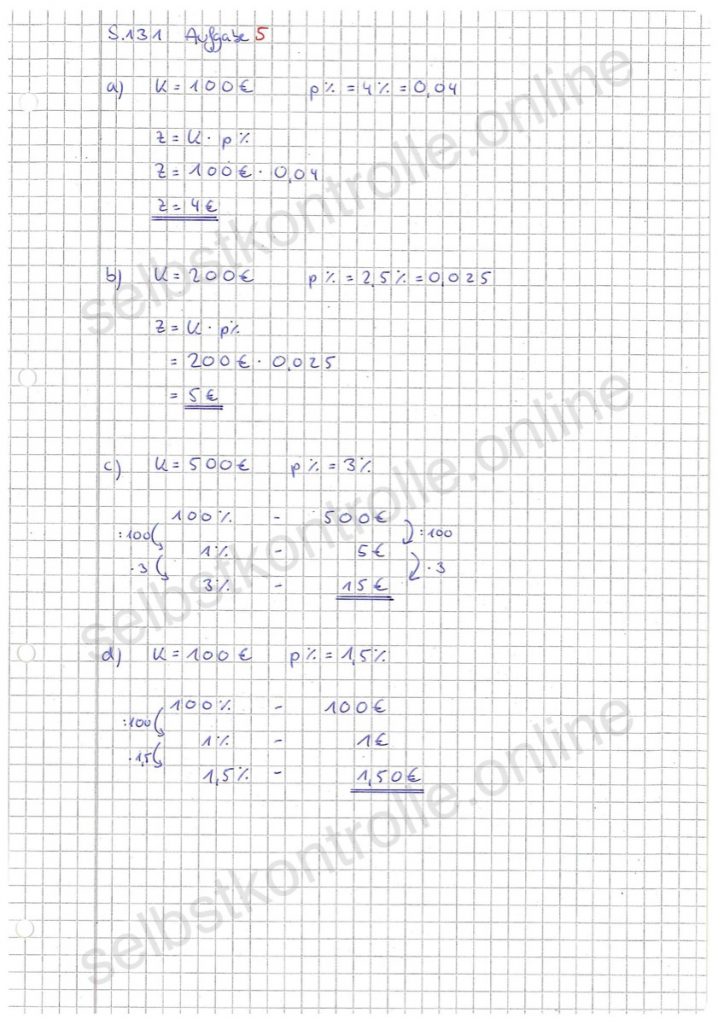 S.131 Aufgabe 5
a) K = 100€ p% = 4% = 0,04
Z = K · p%
Z = 100€ · 0,04
Z = 4€
b) K = 200€ p% = 2,5% = 0,025
Z = K · p%
= 200€ · 0,025
= 5€
c) K = 500€ p% = 3%
100% - 500€
:100 :100
1% - 5€
·3 ·3
3% - 15€
d) K = 100€ p% = 1,5%
100% - 100€
:100
1% - 1€
·1,5
1,5% - 1,50€
selbstkontrolle.online
selbstkontrolle.online
selbstkontrolle.online